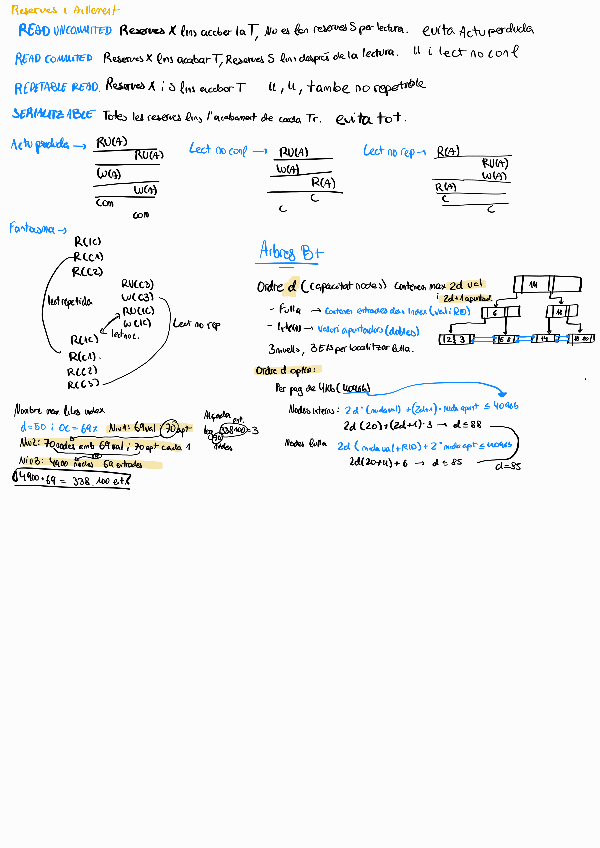 Reserves i Aïllament
READ UNCOMMITED Reserves X fins acabar la T, No es fan reserves S per lectura. evita Actu perduda
READ COMMITED Reserves X fins acabar T, Reserves S fins després de la lectura. " i lect no conf
REPETABLE READ. Reserves X i S fins acabar T ", ", també no repetible
SERIALITZABLE Totes les reserves fins l'acabament de cada Tr. evita tot.
Actu perduda → RU(A)
RU(A)
W(A)
W(A)
Com
com
Lect no conf → RU(A)
W(A)
R(A)
C
C
Lect no rep → R(A)
RU(A)
W(A)
R(A)
C
C
Fantasma →
R(IC)
R(C1)
R(C2)
RU(C3)
W(C3)
RU(IC)
W(IC)
R(IC)
R(C1)
R(C2)
R(C3)
lect repetida
lect no c.
Lect no rep
Arbres B+
Ordre d (capacitat nodes) contenen max 2d val
i 2d+1 apuntad.
- Fulla → contenen entrades dels index (val i RID)
- Intern → valors apuntadors (dobles)
3 nivells, 3 E/S per localitzar fulla.
14
6
18
2 3
14
Ordre d optim:
Per pag de 4Kb (4096b)
Nodes interns: 2d · (mida val) + (2d+1) · mida apunt ≤ 4096b
2d(20)+(2d+1)·3 → d≤88
Nodes fulla 2d (mida val + RID) + 2 · mida apt ≤ 4096b
2d(20+4)+6 → d≤85
d=85
Nombre max files index
d=50 i oc=69% Niv1: 69 val i 70 apt
Niv2: 70 nodes amb 69 val i 70 apt cada 1
Niv3: 4900 nodes 69 entrades
4900·69 = 338.100 ent
Alçada
ent.
log 338100 = 3
(70)
nodes